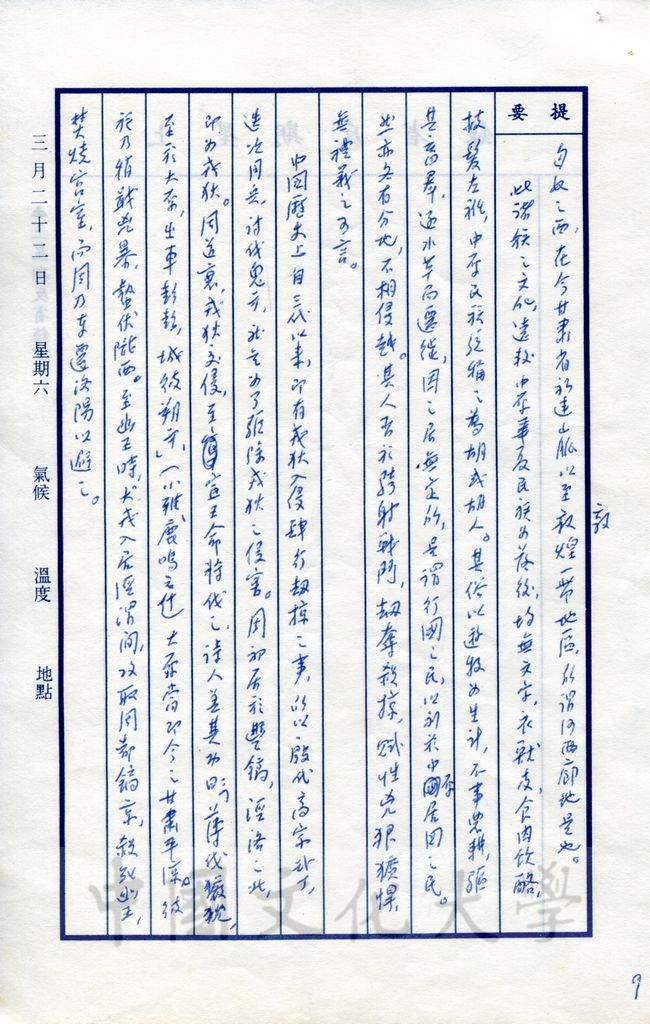 提要
匈奴之西,在今甘肅省祁連山脈以至敦煌一帶地區,所謂河西廊地是也。
敦
此諸族之文化,遠較中原華夏民族為落後,均無文字,衣獸皮,食肉飲酪,
披髮左袵,中原民族統稱之為胡或胡人。其俗以遊牧為生計,不事農耕,驅
其畜羣,逐水草而遷徙,因之居無定所,是謂行國之民,以別於中原居國之民。
然亦各有分地,不相侵越。其人善於騎射戰鬥,劫奪殺掠,賦性兇狠獷悍,
無禮義之可言。
中國歷史上自三代以來,即有戎狄入侵肆行劫掠之事,所以殷代高宗武丁,
連次用兵,討伐鬼方,就是為了驅除戎狄之侵害。周初居於豐鎬,涇洛之北,
即為戎狄。周道衰,戎狄交侵,至宣王命將伐之,詩人美其功曰:「薄伐玁狁,
至於大原,出車彭彭,城彼朔方」(小雅鹿鳴之什)大原當即今之甘肅平涼。彼
於乃稍戢兇暴,蟄伏隴西。至幽王時,犬戎入居涇渭間,攻取周都鎬京,殺死幽王,
焚燒宮室,而周乃東遷洛陽以避之。
三月二十二日 星期六 氣候 溫度 地點
中國文化大學
9